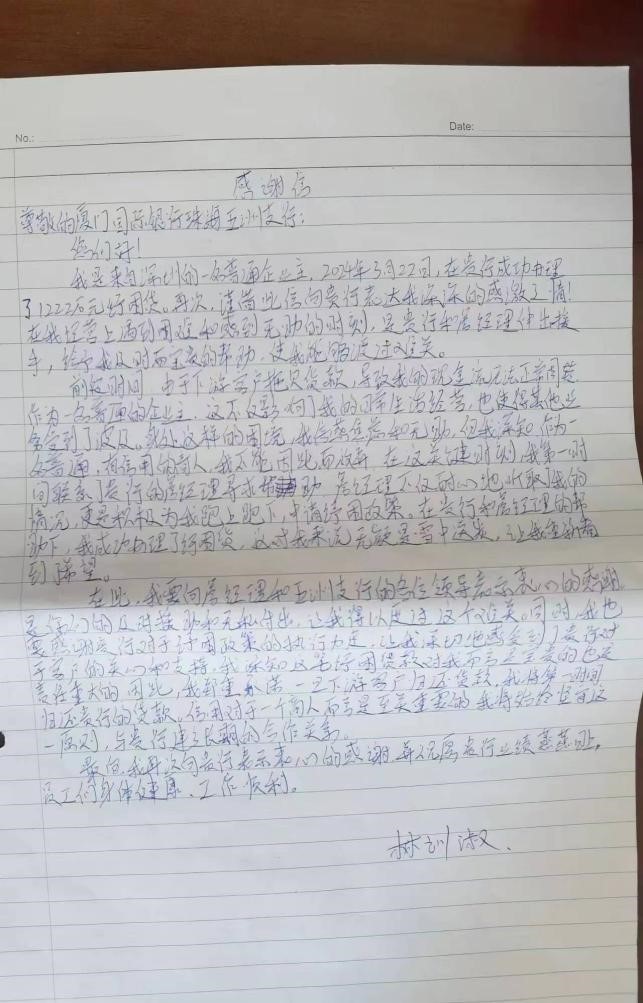 No.:
Date:
感谢信
尊敬的厦门国际银行珠海亚洲支行:
您们好!
我是来自深圳的一名普通企业主, 2024年3月22日, 在贵行成功办理
了1222万元纾困贷。再次, 谨借此信向贵行表达我深深的感激之情!
在我经营上遇到困难和感到无助的时刻, 是贵行和居经理伸出援
手, 给予我及时而宝贵的帮助, 使我能够渡过难关。
前短时间, 由于下游客户拖欠货款, 导致我的现金流无法正常周转
作为一名普通的企业主, 这不仅影响了我的正常生活经营, 也使得其他业
务受到了波及。身处这样的困境, 我倍感焦虑和无助, 但我深知, 作为一
名普通、有信用的商人, 我不能因此而放弃, 在这关键时刻, 我第一时
间联系了贵行的居经理寻求帮助, 居经理不仅耐心地听取了我的
情况, 更是积极为我跑上跑下, 申请纾困政策。在贵行和居经理的帮
助下, 我成功办理了纾困贷, 这对我来说无疑是雪中送炭, 让我重新看
到希望。
在此, 我要向居经理和亚洲支行的各位领导表示衷心的感谢
是你们的及时援助和无私付出, 让我得以度过这个难关。同时, 我也
要感谢贵行对于纾困政策的执行力度, 让我深切地感受到了贵行对
于客户的关心和支持。我深知这笔纾困贷款对我而言是宝贵的也是
责任重大的, 因此, 我郑重承诺一旦下游客户归还货款, 我将第一时间
归还贵行的贷款。信用对于一个商人而言是至关重要的, 我将始终坚守这
一原则, 与贵行建立长期的合作关系。
最后, 我再次向贵行表示衷心的感谢, 并祝愿贵行业绩蒸蒸日上,
员工们身体健康、工作顺利。
林 淑